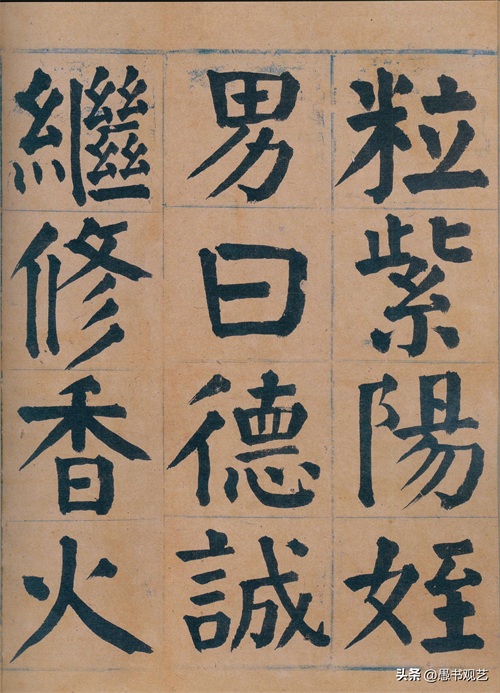 粒紫陽姪
男曰德誠
繼修香火
头条 @愚书观艺